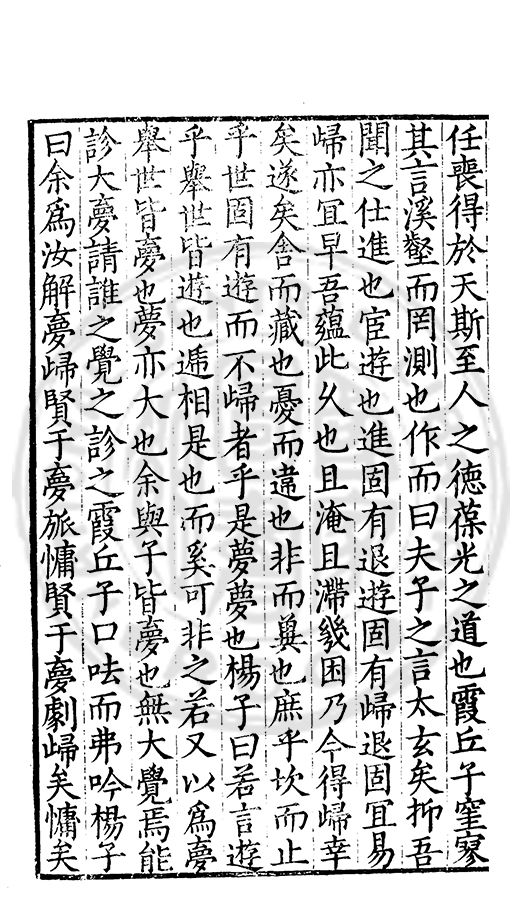 任喪得於天斯至人之德葆光之道也霞丘子窒寥
其言溪壑而罔測也作而曰夫子之言太玄矣抑吾
聞之仕進也宦遊也進固有退遊固有歸退固冝易
歸亦冝早吾蘊此久也且淹且滯幾困乃今得歸幸
矣遂矣舍而藏也憂而違也非而㢲也庶乎坎而止
乎世固有遊而不歸者乎是夢夢也楊子曰若言遊
乎舉世皆遊也遞相是也而奚可非之若又以爲夢
舉世皆夢也夢亦大也余與子皆夢也無大覺焉能
診大夢請誰之覺之診之霞丘子口呿而弗吟楊子
曰余爲汝解夢歸賢于夢旅慵賢于夢劇歸矣慵矣